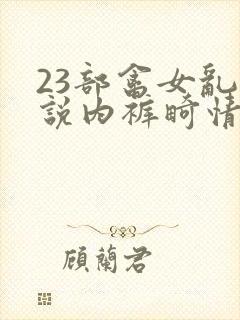 23部畲女乱
說内裤畸情
顧蘭君